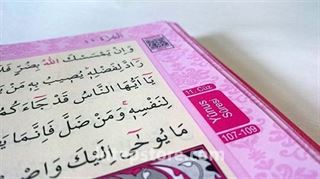 وَاِنْ يَمْسَسْكَ اللّٰهُ بِضُرٍّ فَلَا
رَٓادَّ لِفَضْلِهٖ يُصٖيبُ بِهٖ مَنْ
يَٓا اَيُّهَا النَّاسُ قَدْ جَٓاءَكُمُ
لِنَفْسِهٖ وَمَنْ ضَلَّ فَاِنَّمَا يَضِلُّ
مَا يُوحٰٓى اِلَيْكَ وَاصْبِرْ
11. Cüz
Yûnus
Sûresi
107-109